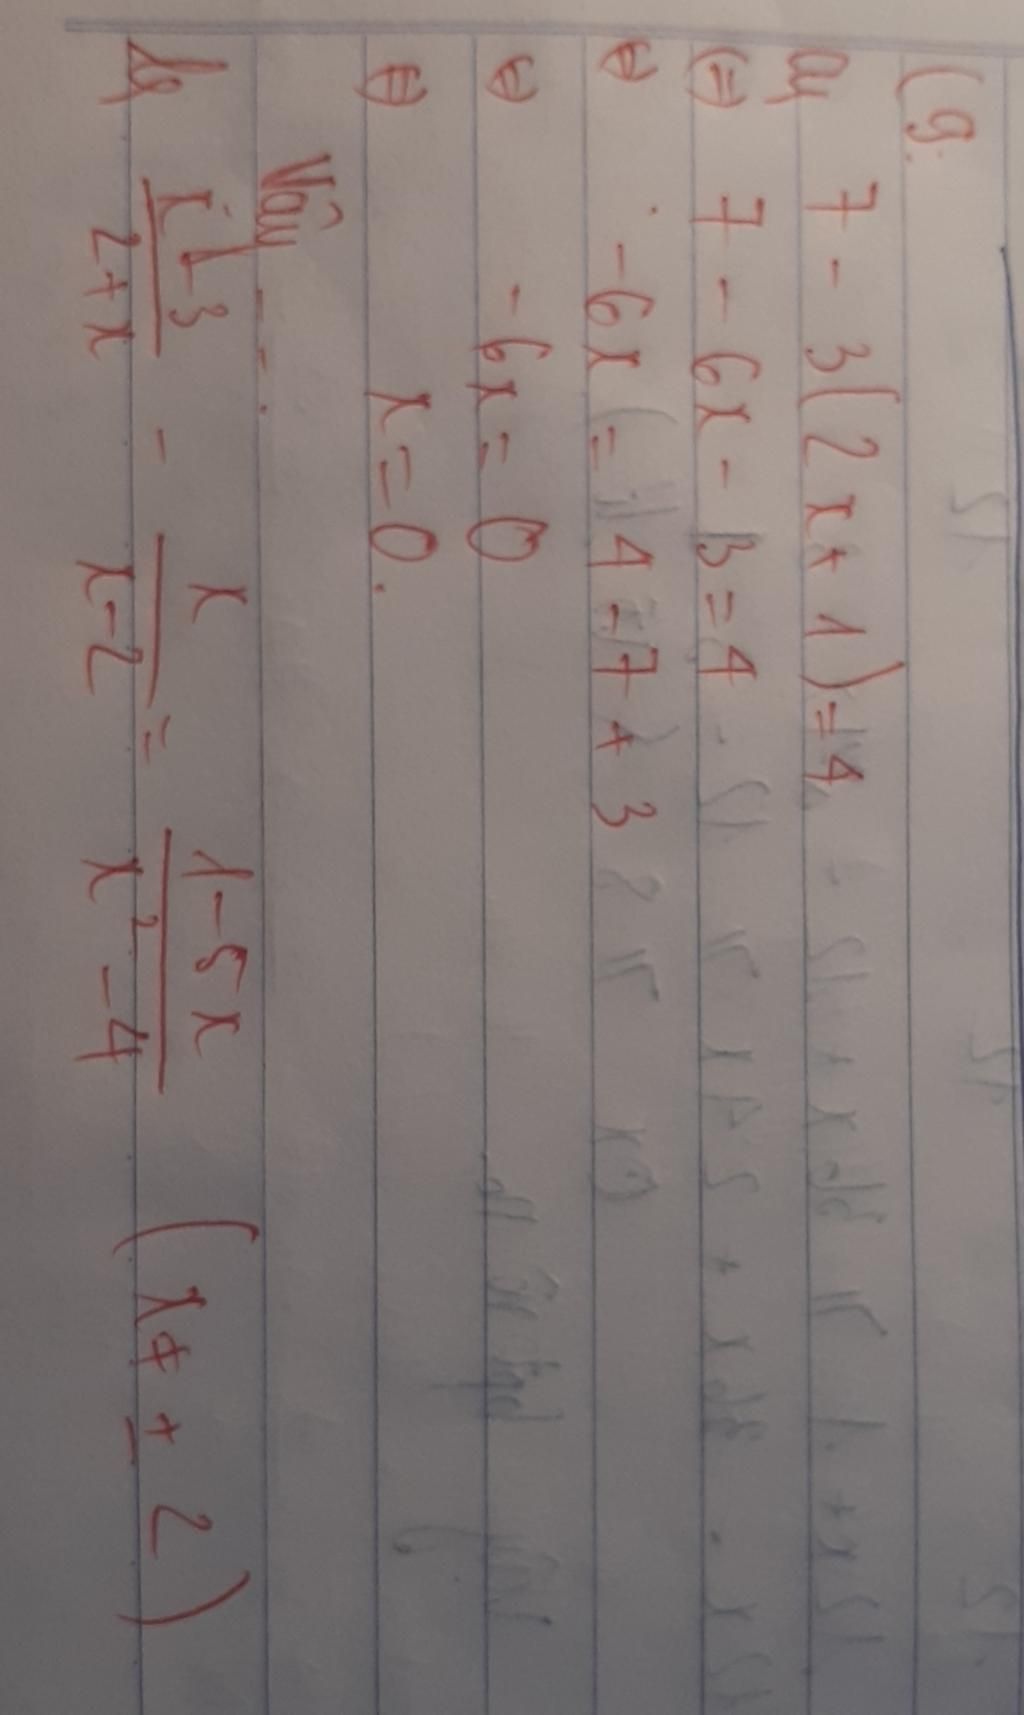 Cg.
a) 7 - 3(2x + 1) = 4
(=) 7 - 6x - 3 = 4
⇔ -6x = 4 - 7 + 3
⇔ -6x = 0
⇔ x = 0.
Vậy - - .
b) \frac{x-3}{2+x} - \frac{x}{x-2} = \frac{1-5x}{x^2-4} (x ≠ ± 2)